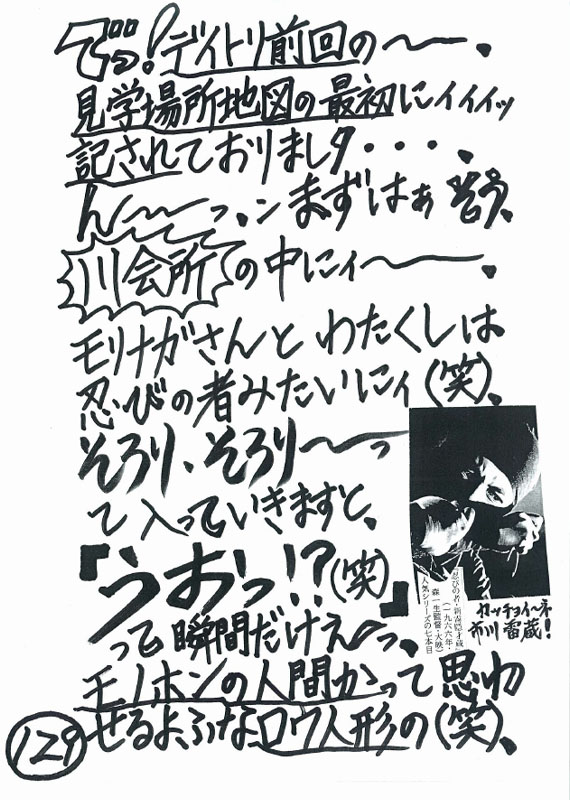 でっ!デイトリ前回の〜ー。
見学場所地図の最初にィィィッ
記されておりまし夕・・・、
ん〜〜っ、ンまずはぁ
川会所の中にィ〜ー。
モリナガさんとわたくしは
忍びの者みたいにィ(笑)、
そろり、そろり〜っ
て入っていきますと、
『うおっ!?(笑)』
って瞬間だけえ〜っ、
モノホンの人間かって思わ
せるよふなロウ人形の(笑)、
忍びの者・新霧隠才蔵
(一九六六年・
森一生監督・大映)
人気シリーズの七本目
カッチョイーネ
市川雷蔵!
129